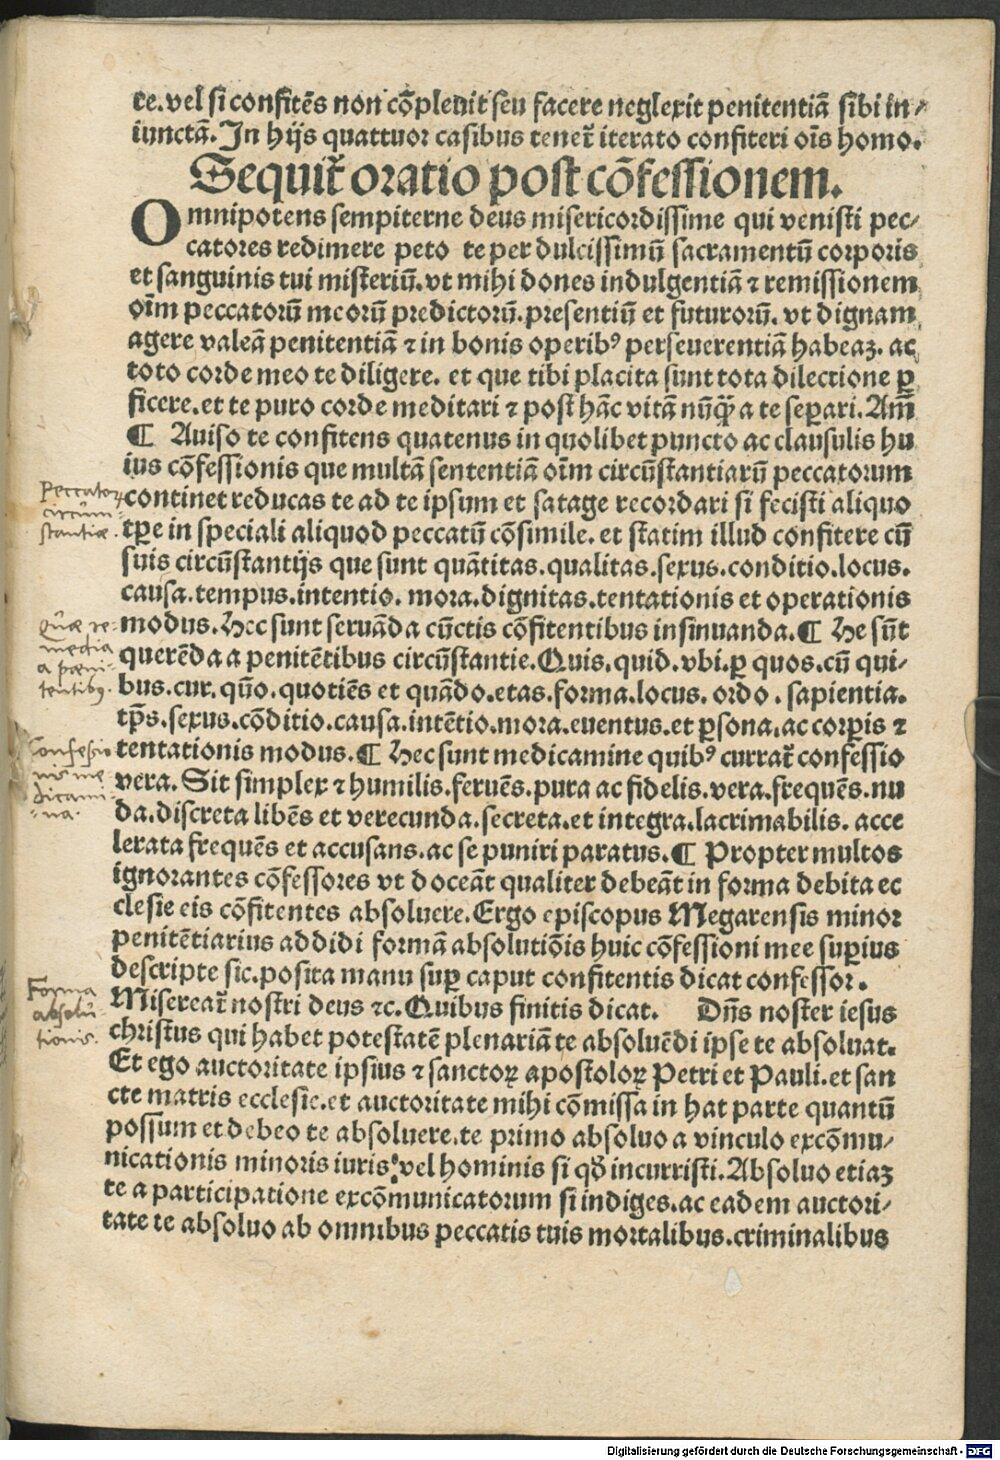 te.vel si confitēs non cōpleuit seu facere neglexit penitentiā sibi in⸗
iunctā. In hijs quattuor casibus tenet̄ iterato confiteri oīs homo.
Sequit̄ oratio post cōfessionem.
Omnipotens sempiterne deus misericordissime qui venisti pec⸗
catores redimere peto te per dulcissimū sacramentū corporis
et sanguinis tui misteriū. vt mihi dones indulgentiā ⁊ remissionem
oīm peccatorū meorū predictorū. presentiū et futurorū. vt dignam
agere valeā penitentiā ⁊ in bonis operibꝰ perseuerentiā habeaꝫ. ac
toto corde meo te diligere. et que tibi placita sunt tota dilectione ꝑ
ficere. et te puro corde meditari ⁊ post hāc vitā nūq̄ꝫ a te seꝑari. Amē
¶ Auiso te confitens quatenus in quolibet puncto ac clausulis hu
ius cōfessionis que multā sententiā oīm circūstantiarū peccatorum
continet reducas te ad te ipsum et satage recordari si fecisti aliquo
tꝑe in speciali aliquod peccatū cōsimile. et statim illud confitere cū
suis circūstantijs que sunt quātitas. qualitas. sexus. conditio. locus.
causa. tempus. intentio. mora. dignitas. tentationis et operationis
modus. Hec sunt seruāda cūctis cōfitentibus insinuanda. ¶ He sūt
querēda a penitētibus circūstantie. Quis. quid. vbi. ꝑ quos. cū qui⸗
bus. cur. quō. quotiēs et quādo. etas. forma. locus. ordo. sapientia.
tꝑs. sexus. cōditio. causa. intētio. mora. euentus. et ꝑsona. ac corꝑis ⁊
tentationis modus. ¶ Hec sunt medicamine quibꝰ currat̄ confessio
vera. Sit simplex ⁊ humilis. feruēs. pura ac fidelis. vera. frequēs. nu
da. discreta libēs et verecunda. secreta. et integra. lacrimabilis. acce
lerata frequēs et accusans. ac se puniri paratus. ¶ Propter multos
ignorantes cōfessores vt doceāt qualiter debeāt in forma debita ec
clesie eis cōfitentes absoluere. Ergo episcopus Megarensis minor
penitētiarius addidi formā absolutiōis huic cōfessioni mee suꝑius
descripte sic. posita manu suꝑ caput confitentis dicat confessor.
Misereat̄ nostri deus ⁊c. Quibus finitis dicat. Dn̄s noster iesus
christus qui habet potestatē plenariā te absoluēdi ipse te absoluat.
Et ego auctoritate ipsius ⁊ sanctoꝝ apostoloꝝ Petri et Pauli. et san
cte matris ecclesie. et auctoritate mihi cōmissa in hat parte quantū
possum et debeo te absoluere. te primo absoluo a vinculo excōmu⸗
nicationis minoris iuris: vel hominis si qď incurristi. Absoluo etiaꝫ
te a participatione excōmunicatorum si indiges. ac eadem auctori⸗
tate te absoluo ab omnibus peccatis tuis mortalibus. criminalibus
Peccatoꝝ
circum
stantiæ.
Quæ re⸗
media
a pæni⸗
tentibꝫ.
Confessio
nis me
dicami⸗
na.
Forma
absolu⸗
tionis.
Digitalisierung gefördert durch die Deutsche Forschungsgemeinschaft - DFG